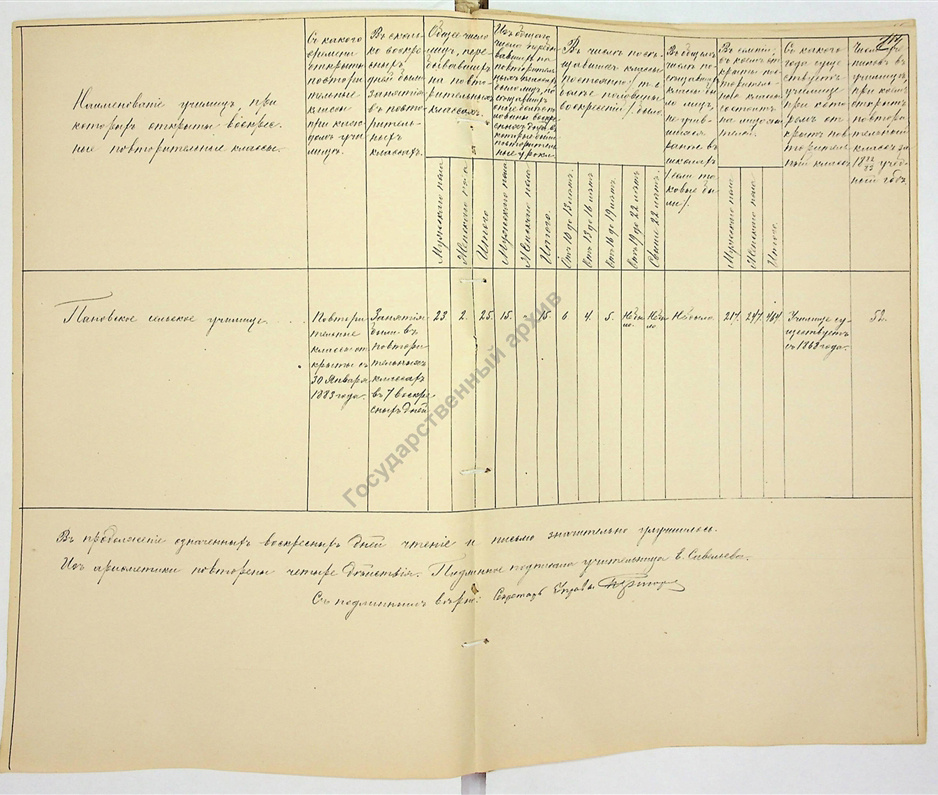 Наименованіе училищъ, при
которыхъ открыты воскрес-
ные повторительные классы.
Съ какого
времени
открыты
повтори-
тельные
классы
при каж-
домъ учи-
лищѣ.
Въ сколь-
ко воскре-
сныхъ
дней были
занятія
въ повто-
ритель-
ныхъ
классахъ.
Общее число
лицъ, пере-
бывавшихъ
на повто-
рительныхъ
классахъ.
Мужского пола
Женского пола
Итого
Изъ общаго
числа перебы-
вавшихъ на
повторитель-
ныхъ классахъ
было лицъ, по-
сѣщавшихъ
Мужского пола
Женского пола
Итого.
Въ числѣ посѣ-
щавшихъ классы
постоянно / т. е.
болѣе половины
воскресеній / было:
Отъ 10 до 13 лѣтъ.
Отъ 13 до 16 лѣтъ
Отъ 16 до 19 лѣтъ
Отъ 19 до 22 лѣтъ
Свыше 22 лѣтъ.
Въ общемъ
числѣ по-
сѣщавшихъ
классы бы-
ло лицъ,
не учив-
шихся
ранѣе въ
школахъ
/ если та-
ковые бы-
ли /.
Мужского пола.
Женского пола.
Итого.
Съ какого
года суще-
ствуетъ
училище
при кото-
ромъ от-
крытъ пов-
торитель-
ный классъ
Число уче-
никовъ въ
училищѣ,
при коемъ
открытъ
повтори-
тельный
классъ за
1882/83 учеб-
ный годъ.
Пановское сельское училище
Повтори-
тельные
классы от-
крыты съ
30 Января
1883 года.
Занятія
были въ
повтори-
тельныхъ
классахъ
въ 7 воскре-
сныхъ дней
23. 2. 25. 15. 15. 6. 4. 5. Не бы-
ло. Не бы-
ло Не было. 217. 247. 464.
Училище су-
ществуетъ
съ 1863 года.
52.
Въ продолженіе означенныхъ воскресныхъ дней чтеніе и письмо значительно улучшилось.
Изъ ариѳметики повторены четыре дѣйствія. Подлинное подписала учительница Е. Савельева.
Съ подлиннымъ вѣрно: Секретарь Управы
Государственный архив